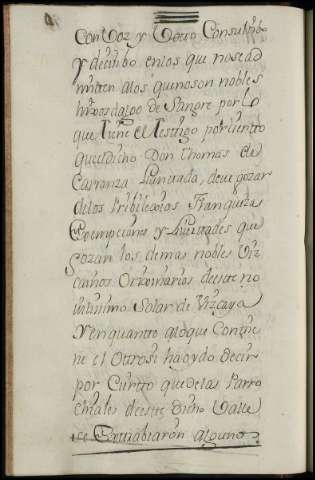 Con Voz y Voto Consultibo
y decisibo en los que no se ad
miten a los que no son nobles
hijosdalgo de Sangre por lo
que tiene el testigo por cierto
que el dicho Don Thomas de
Carranza Quintada, deve gozar
de los Pribilegios Franquezas
Exempciones y livertades que
gozan los demas nobles Viz
cainos Orixinarios de este no
vilissimo Solar de Vizcaya
y en quantto a lo que Contie
ne el Otrosi ha oydo decir
por Cierto que de las Parro
chiales de este dicho Valle
se extrabiaron algunos